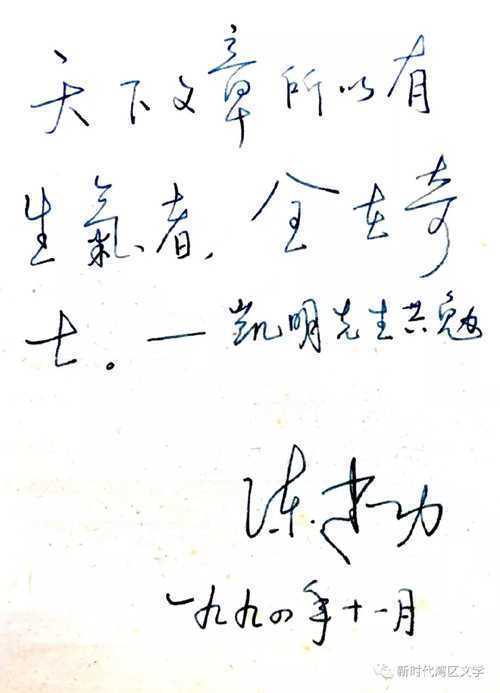 天下文章所以有
生氣者，全在奇
士。— 凯明先生共勉
陈建功
一九九四年十一月
新时代湾区文学